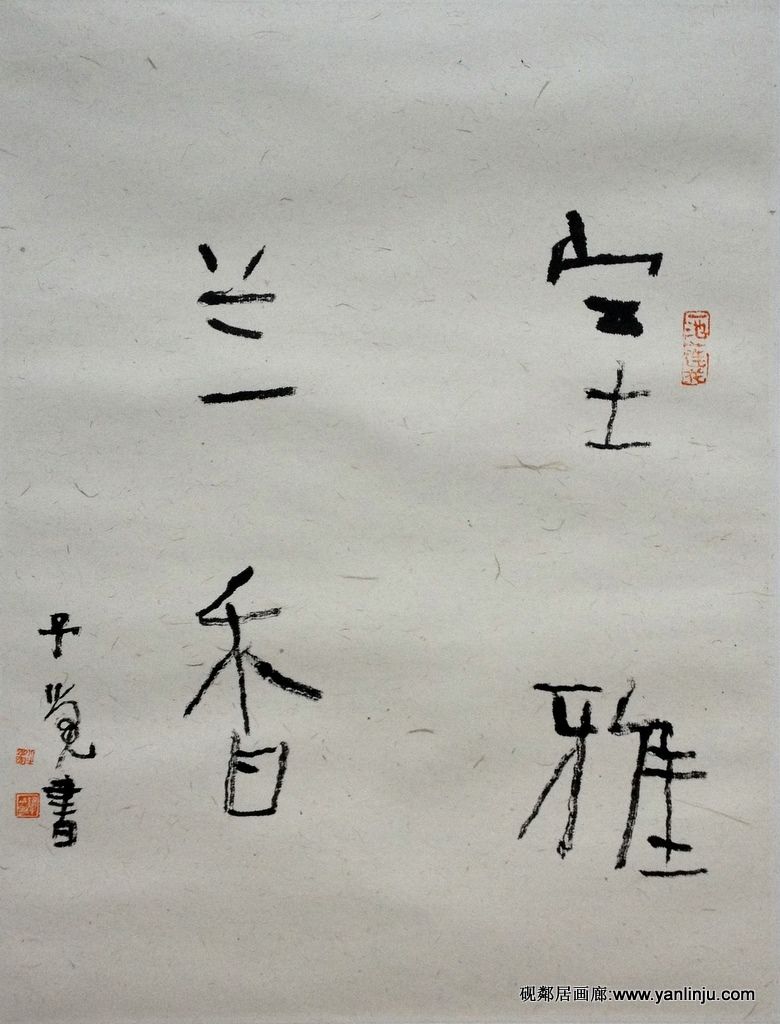 室雅
兰香
子觉書
砚鄰居画廊:www.yanlinju.com